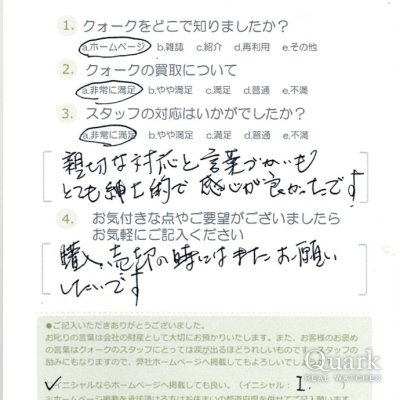 1. クォークをどこで知りましたか？
a.ホームページ b.雑誌 c.紹介 d.再利用 e.その他
2. クォークの買取について
a.非常に満足 b.やや満足 c.満足 d.普通 e.不満
3. スタッフの対応はいかがでしたか？
a.非常に満足 b.やや満足 c.満足 d.普通 e.不満
親切な対応と言葉づかいも
とても紳士的で感心が良かったです
4. お気付きな点やご要望がございましたら
お気軽にご記入ください
購入、売却の時にはまたお願い
したいです
●ご記入いただきありがとうございました。
お叱りの言葉は会社の財産として大切にお預かりいたします。また、お客様のお褒め
の言葉はクォークのスタッフにとっては涙が出るほどうれしいものです。スタッフの
励みにもなりますので、弊社ホームページへ掲載してもよろしいでしょうか？
Quark
REAL WATCHES
✓イニシャルならホームページへ掲載しても良い。（イニシャル： I.
※ホームページ掲載を承諾頂ける方はお住まいの都道府県を併せてご記入ください